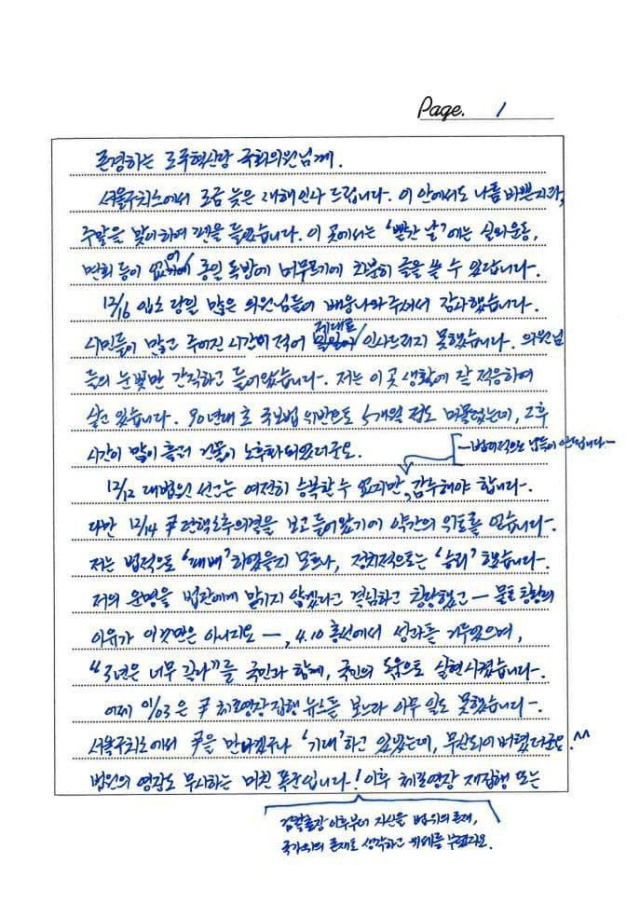 Page. 1
존경하는 조국혁신당 국회의원님께.
서울구치소에서 조금 늦은 새해인사 드립니다. 이 안에서도 나름 바쁜지라,
주말을 맞이하여 펜을 들었습니다. 이 곳에서는 '빨간 날'에는 실외운동,
면회 등이 없어 종일 독방에 머무르기에 차분히 글을 쓸 수 있답니다.
12/16 입소 당일 많은 의원님들이 배웅나와주셔서 감사했습니다.
시민들이 많고 주어진 시간이 적어 제대로 인사드리지 못했습니다. 의원님
들의 눈빛만 간직하고 들어왔습니다. 저는 이 곳 생활에 잘 적응하여
살고 있습니다. 90년대 초 국보법 위반으로 5개월 정도 머물렀는데, 그후
시간이 많이 흘러 건물이 노후화되었더군요.
―법리적으로 납득이 안됩니다―
12/12 대법원 선고는 여전히 승복할 수 없지만, 감수해야 합니다.
다만 12/14 尹 탄핵소추의결을 보고 들어왔기에 약간의 위로를 얻습니다.
저는 법적으로 '패배'하였을지 모르나, 정치적으로는 '승리'했습니다.
저의 운명을 법관에게 맡기지 않겠다고 결심하고 창당했고 ― 물론 창당의
이유가 이것만은 아니지요 ―, 4.10 총선에서 성과를 거두었으며,
"3년은 너무 길다"를 국민과 함께, 국민의 도움으로 실현시켰습니다.
어제 01/03 은 尹 체포영장 집행 뉴스를 보느라 아무 일도 못했습니다.
서울구치소에서 尹을 만나겠구나 '기대'하고 있었는데, 무산되어 버렸더군요. ^^
법원의 영장도 무시하는 미친 폭군입니다! 이후 체포영장 재집행 또는
검찰총장 이후부터 자신을 법위의 존재,
국가위의 존재로 생각하고 행세를 했지요.